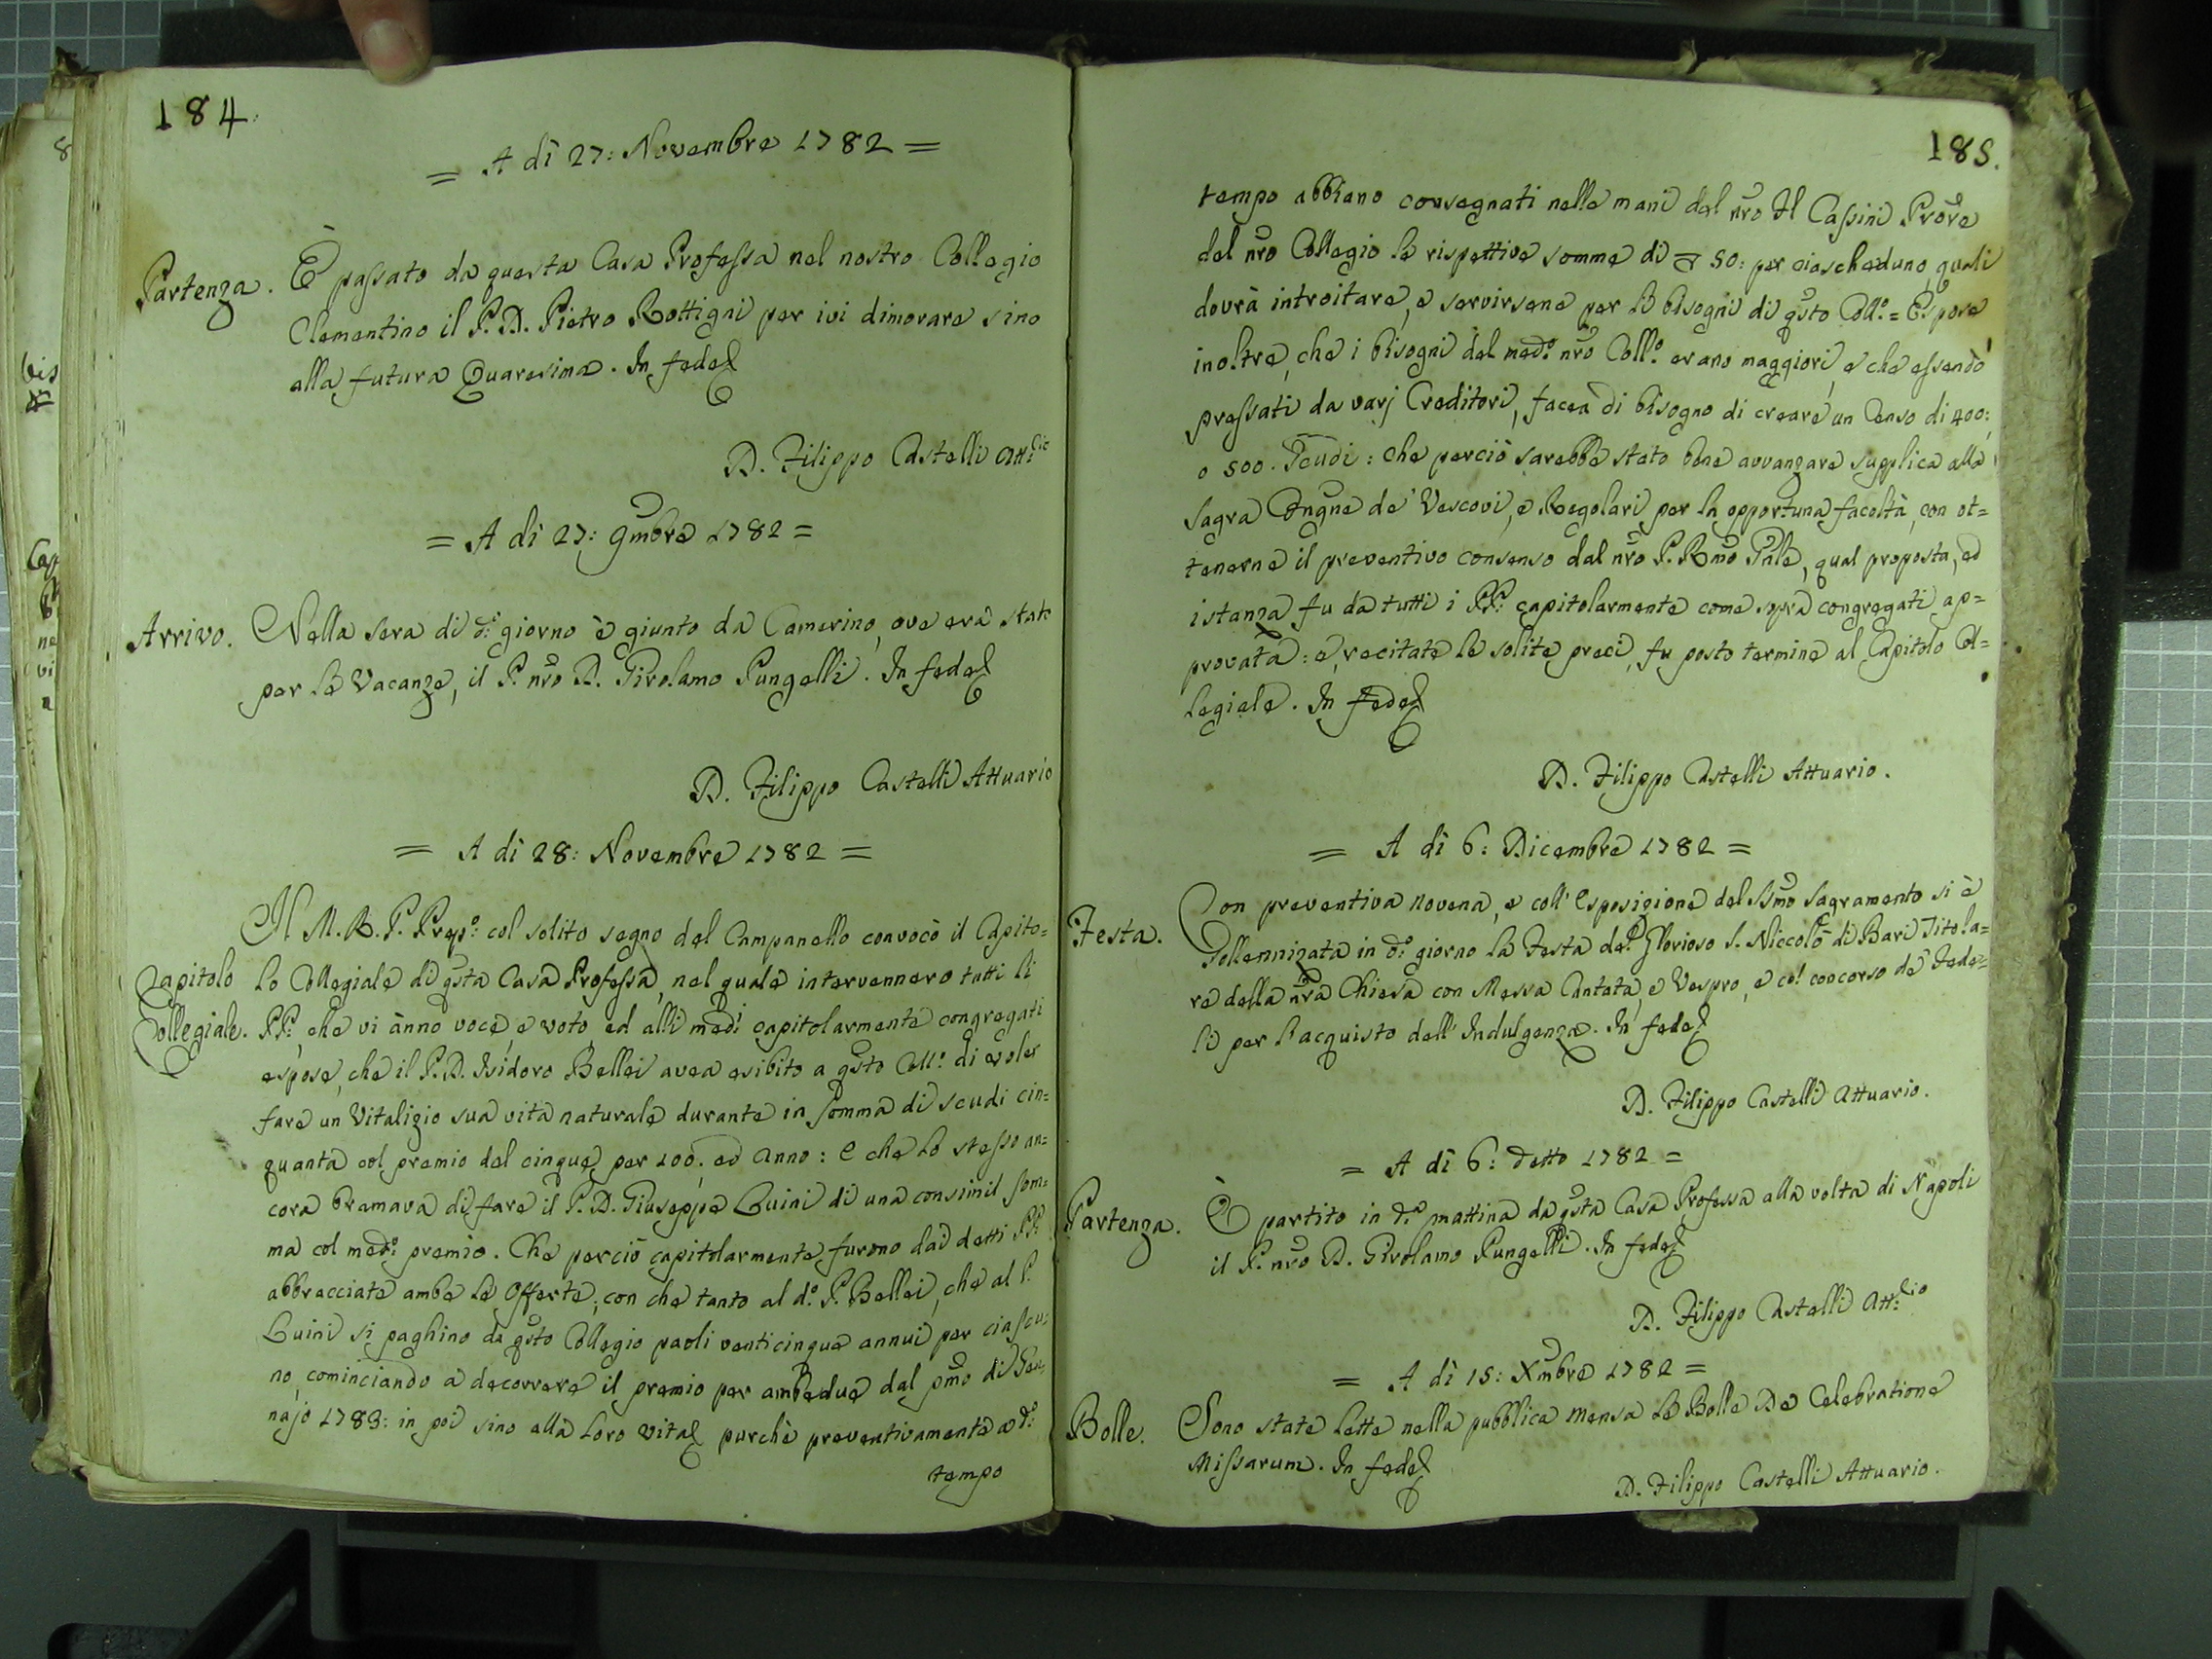 184.
= A di 27: Novembre 1782 =
Partenza. È passato da questa Casa Professa nel nostro Collegio
Clementino il P. D. Pietro Rottigni per ivi dimorare sino
alla futura Quaresima. In fede
D. Filippo Castelli Att.rio
= A di 27: 9mbre 1782 =
Arrivo. Nella sera di d.o giorno è giunto da Camerino, ove era stato
per le Vacanze, il P. nro D. Girolamo Pungelli. In fede
D. Filippo Castelli Attuario
= A di 28: Novembre 1782 =
Il M. R. P. Prep.o col solito segno del Campanello convocò il Capito=
Capitolo lo Collegiale di qsta Casa Professa, nel quale intervennero tutti li
Collegiale. PP: che vi ànno voce, e voto, ed alli med.i capitolarmente congregati
espose, che il P. D. Isidoro Bellei avea esibito a qsto Coll.o di voler
fare un Vitalizio sua vita naturale durante in somma di scudi cin=
quanta col premio del cinque per 100: ad anno: e che lo stesso an=
cora bramava di fare il P. D. Giuseppe Luini di una consimil som=
ma col med.o premio. Che perciò capitolarmente furono dai detti PP:
abbracciate ambe le offerte; con che tanto al d.o P. Bellei, che al P.
Luini si paghino da qsto Collegio paoli venticinque annui per ciascu=
no, cominciando a decorrere il premio per ambedue dal pmo di Gen=
najo 1783: in poi sino alla loro vita purchè preventivamente a d.o
tempo
185.
tempo abbiano consegnati nelle mani del nro Il Cassini Prore
del nro Collegio le rispettive somme di 50: per ciascheduno, quali
dovrà introitare, e servirsene per li bisogni di qsto Coll.o = Espose
inoltre, che i bisogni del med.o nro Coll.o erano maggiori, e che essendo
pressati da varj Creditori, facea di bisogno di creare un Censo di 400:,
o 500. Scudi: che perciò sarebbe stato bene avvanzare supplica alla
Sagra Congne de' Vescovi, e Regolari per la opportuna facoltà, con ot=
tenerne il preventivo consenso dal nro P. Rmo Gnle, qual proposta, ed
istanza fu da tutti i PP: capitolarmente come sopra congregati ap=
provata: e, recitate le solite preci, fu posto termine al Capitolo Col=
legiale. In fede
D. Filippo Castelli Attuario.
= A di 6: Dicembre 1782 =
Festa. Con preventiva novena, e coll' esposizione del Ssmo Sagramento si è
Sollennizata in d.o giorno la Festa del Glorioso S. Niccolò di Bari Titola=
re della nra Chiesa con Messa Cantata, e Vespro, e col concorso de' Fede=
li per l'acquisto dell' Indulgenza. In fede
D. Filippo Castelli Attuario.
= A di 6: detto 1782 =
Partenza. È partito in d.a mattina da qsta Casa Professa alla volta di Napoli
il P. nro D. Girolamo Pungelli. In fede
D. Filippo Castelli Att.rio
= A di 15: Xmbre 1782 =
Bolle. Sono state lette nella pubblica mensa le Bolle De Celebratione
Missarum. In fede
D. Filippo Castelli Attuario.